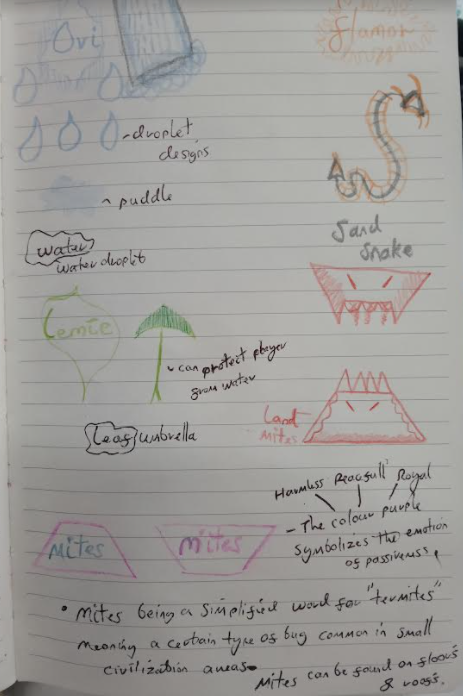 Ovi
flamor
droplet
designs
puddle
water
water droplet
Sand
Snake
Lemie
can protect player
from water
Leaf umbrella
Land
mites
Harmless Peacefull Royal
- The colour purple
symbolizes the emotion
of passiveness,
mites
mites
• mites being a simplified word for "termites"
meaning a certain type of bug common in small
civilization areas.
Mites can be found on floors
& roofs.